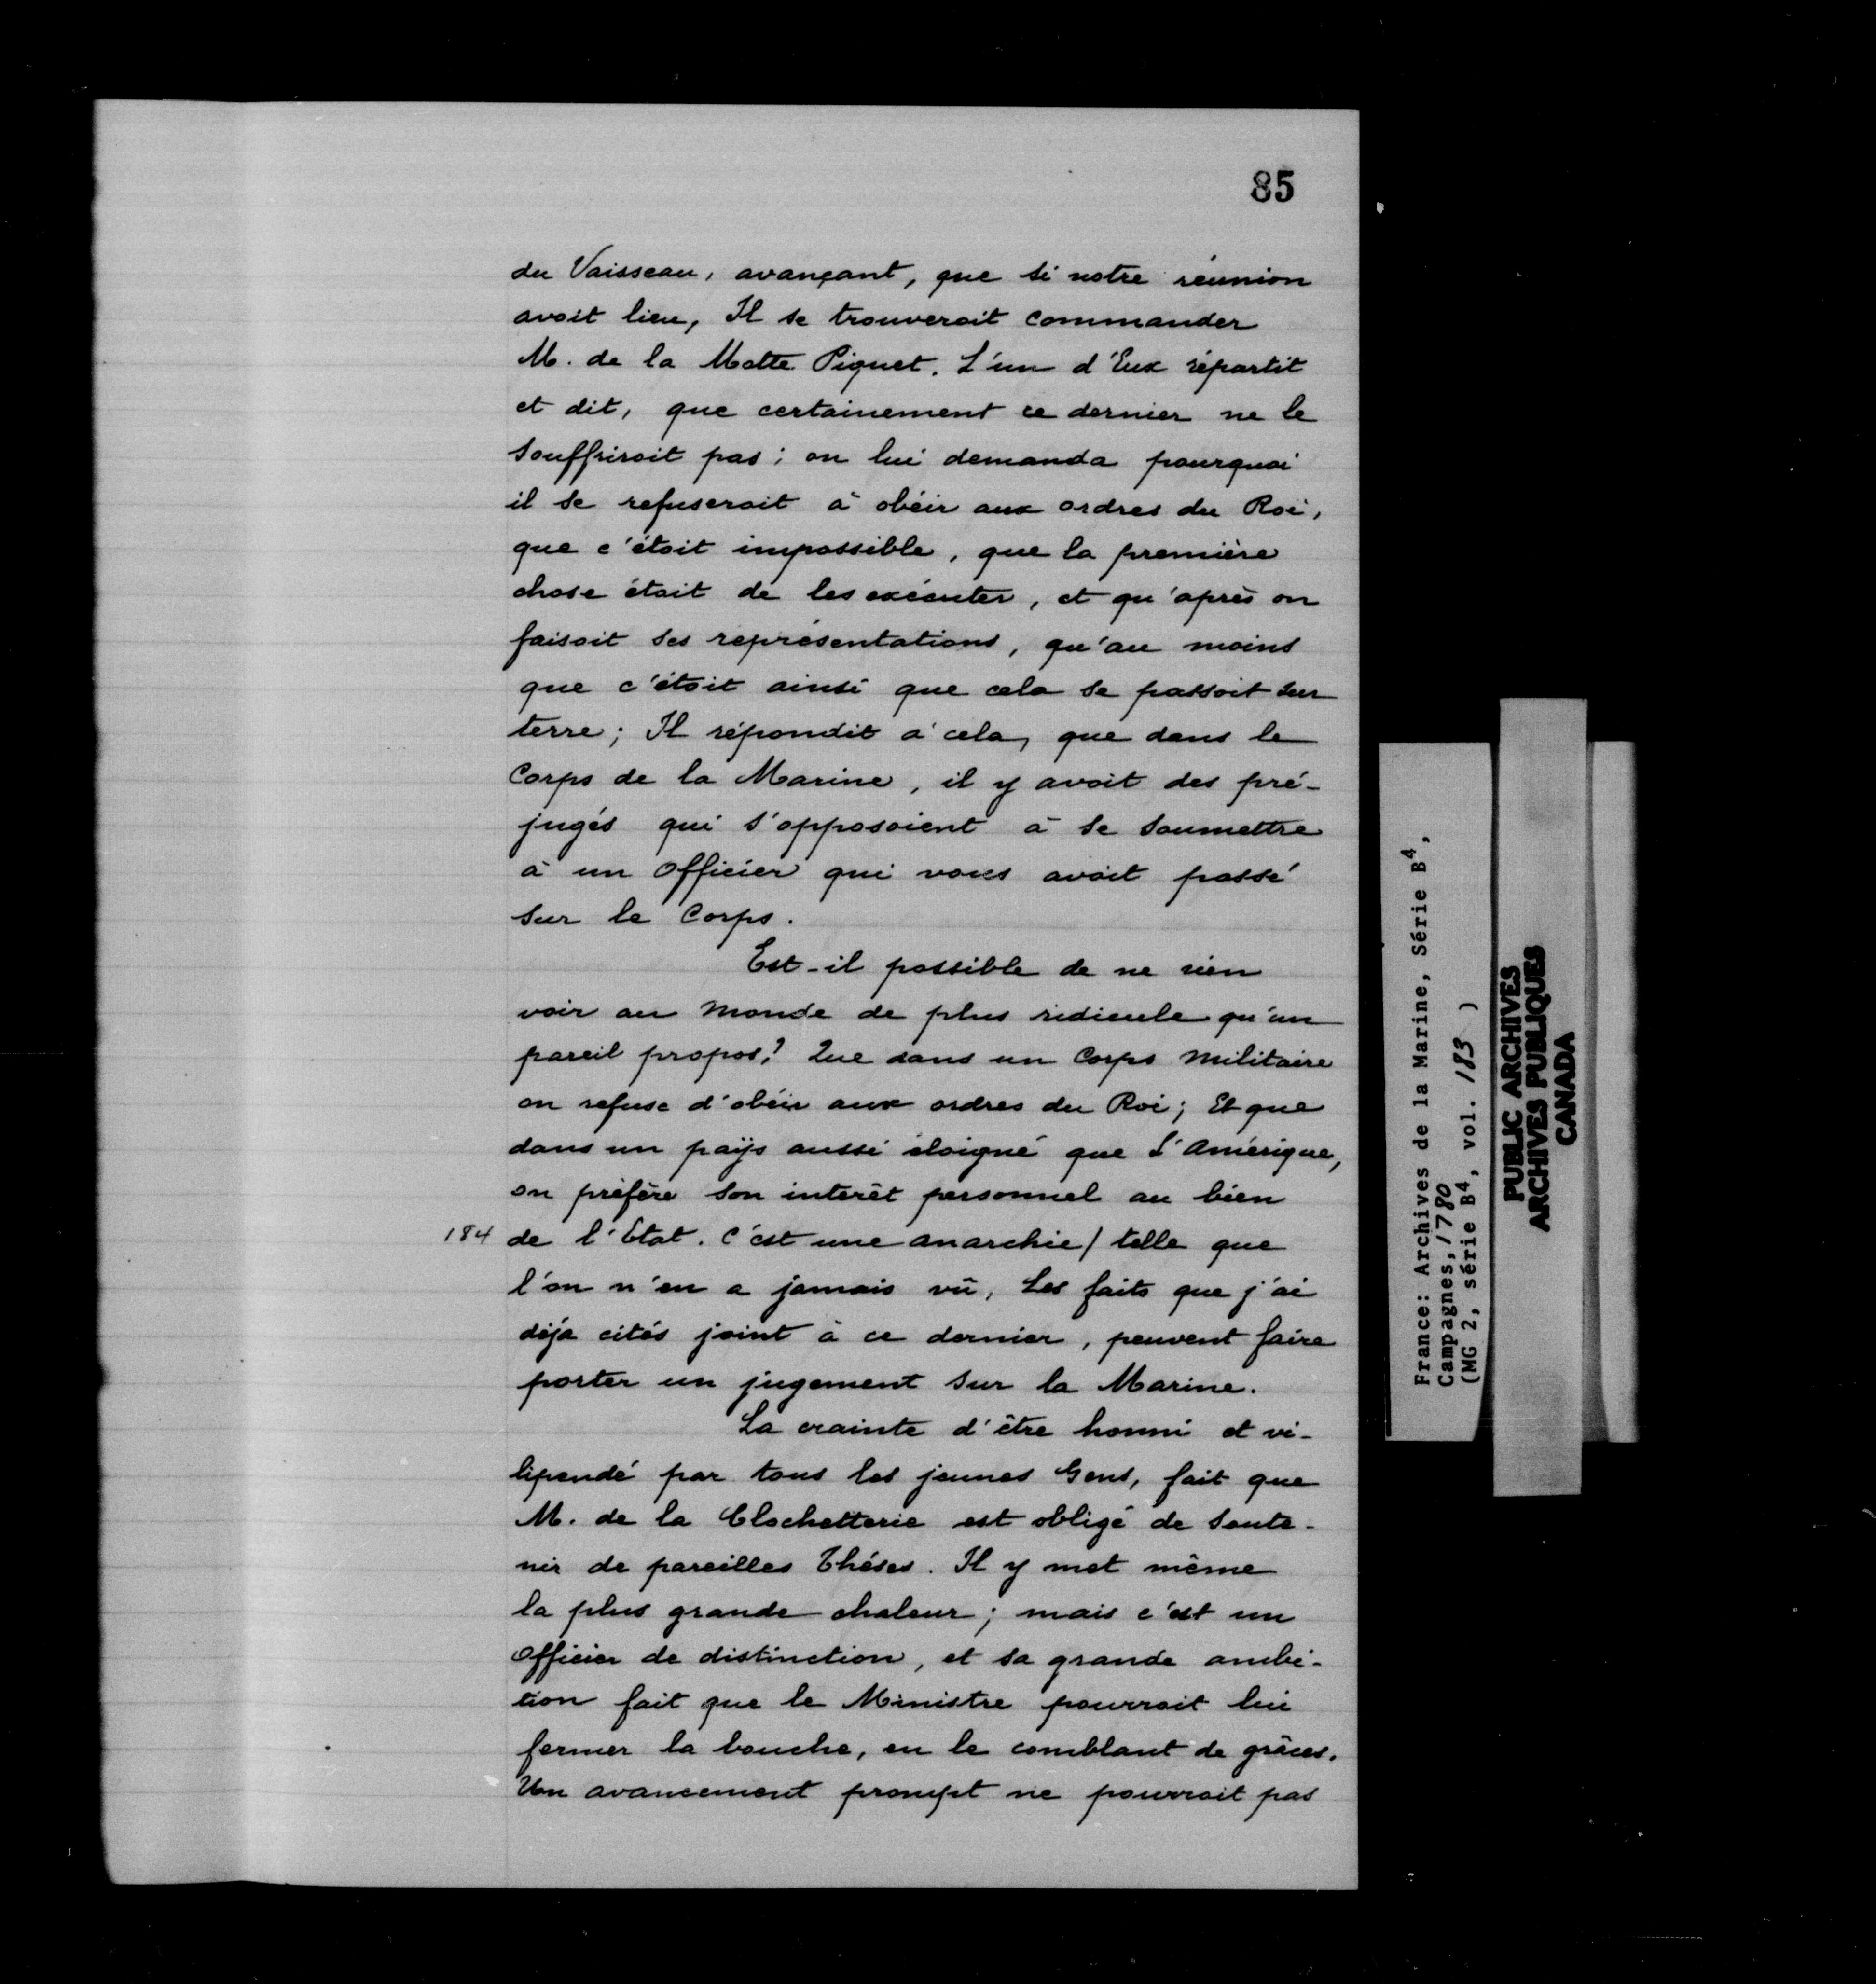 85
du Vaisseau, avançant, que si notre réunion
avoit lieu, Il se trouveroit commander
M. de la Motte Piquet. L'un d'Eux répartit
et dit, que certainement ce dernier ne le
souffriroit pas; on lui demanda pourquoi
il se refuserait à obéir aux ordres du Roi,
que c'étoit impossible, que la première
chose était de les exécuter, et qu'après on
faisoit ses représentations, qu'au moins
que c'étoit ainsi que cela se passoit sur
terre; Il répondit à cela, que dans le
Corps de la Marine, il y avoit des pré-
jugés qui s'opposoient à se soumettre
à un officier qui vous avoit passé
sur le Corps.
Est-il possible de ne rien
voir au Monde de plus ridicule qu'un
pareil propos? Que dans un Corps Militaire
on refuse d'obéir aux ordres du Roi; Et que
dans un païs aussi éloigné que l'Amérique,
on préfère son interêt personnel au bien
184 de l'Etat. C'est une anarchie / telle que
l'on n'en a jamais vû, Les faits que j'ai
déja cités joint à ce dernier, peuvent faire
porter un jugement sur la Marine.
La crainte d'être honni et vi-
lipendé par tous les jeunes Gens, fait que
M. de la Clochetterie est obligé de soute-
nir de pareilles Thèses. Il y met même
la plus grande chaleur; mais c'est un
officier de distinction, et sa grande ambi-
tion fait que le Ministre pourroit lui
fermer la bouche, en le comblant de grâces.
Un avancement prompt ne pourroit pas
France: Archives de la Marine, Série B4,
Campagnes, 1780
(MG 2, série B4, vol. 183 )
PUBLIC ARCHIVES
ARCHIVES PUBLIQUES
CANADA